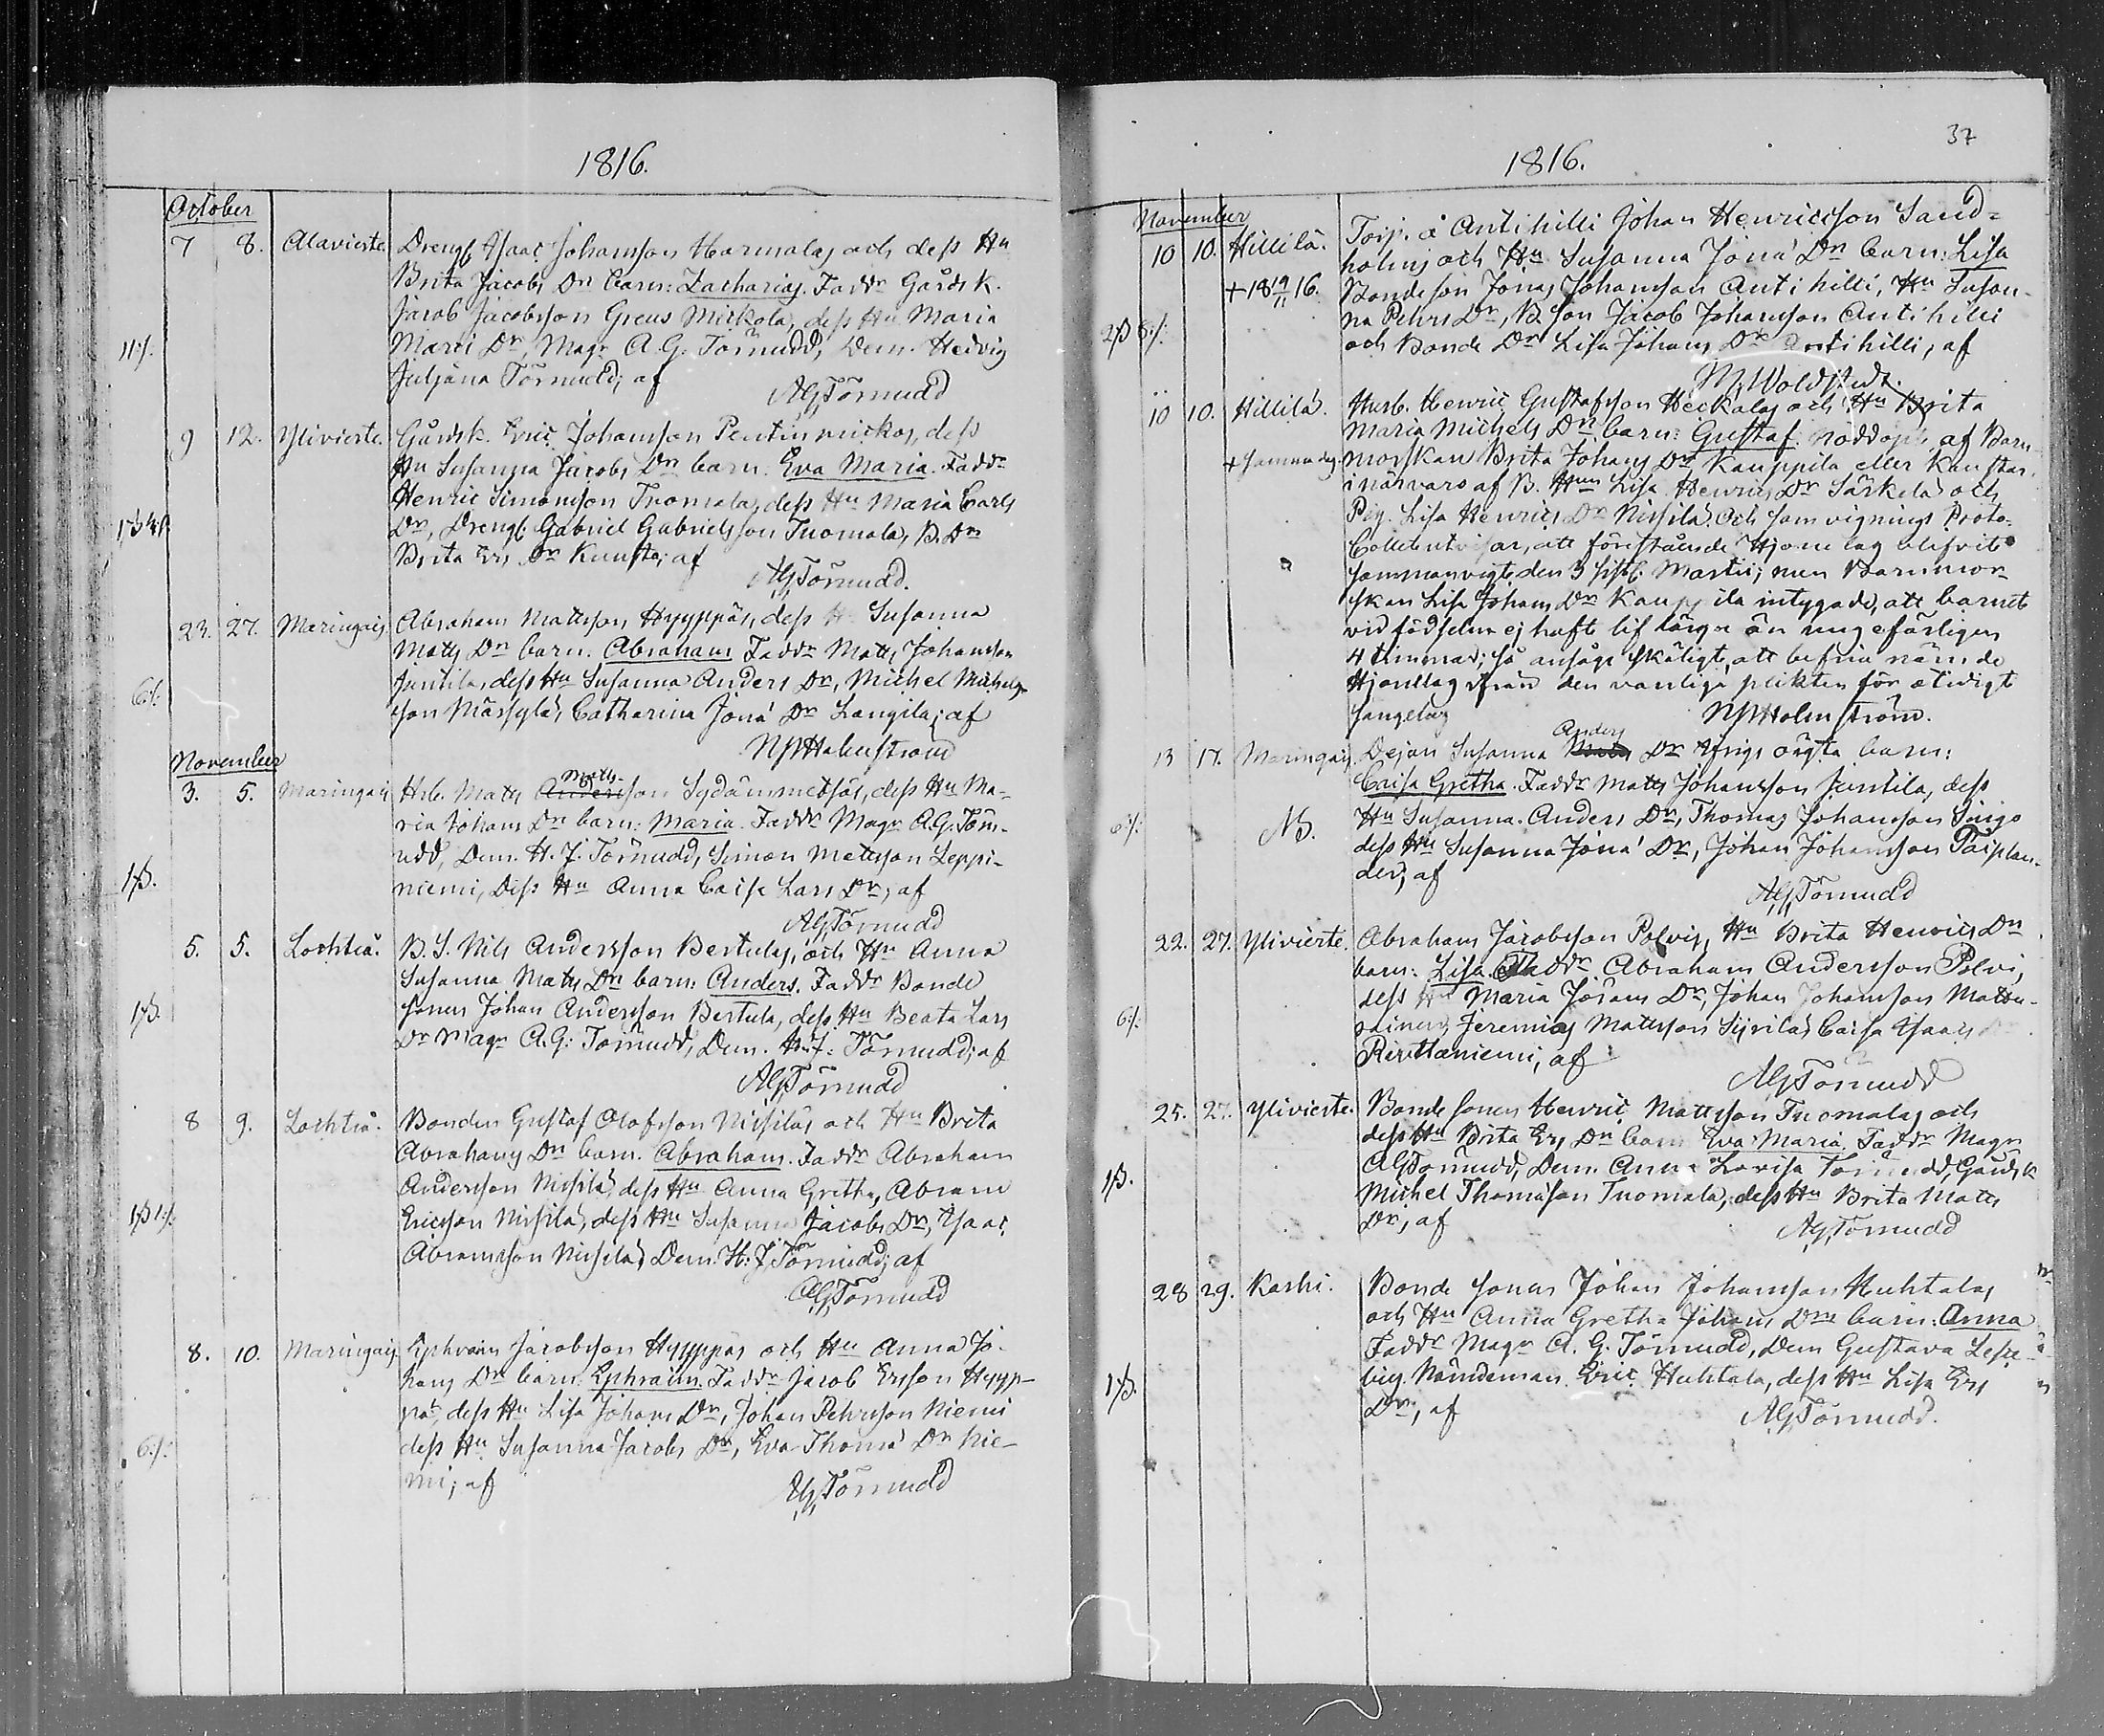 1816.
October
7 8. Alavierte. Drengl Isaac Johansson Marmalas och dess Hu
Brita Jacobs Dr barn: Zacharias. Faddr Gårds K.
Jacob Jacobsson Greus Mickola, dess Hu Maria
Marci Dr, Magr A. G. Törnudd, Dem. Hedvig
11:/. Juljana Törnudd; af
AGTörnudd
9 12. Ylivierte. Gårdsk. Eric Johansson Penttinmickos, dess
Hu Susanna Jacobs Dr barn. Eva Maria. Faddr
Henric Simonsson Tuomala, dess Hu Maria Carls
Dr, Drengl Gabriel Gabrielsson Tuomala, B. Dr
Brita Ers Dr Kunsta; af
AGTörnudd.
23. 27. Maringais Abraham Mattsson Hyyppäs, dess Hu Susanna
Matts Dr barn. Abraham Faddr Matts Johansson
Juntila, dess Hu Susanna Anders Dr, Michel Michels-
6:/. son Mässylä, Catharina Jona' Dr Langila; af
NJHolmström
November
3. 5. Maringais Hrb. Matts Anderssson Matts- Sydänmetsäs, dess Hu Ma-
ria Johans Dr barn: Maria. Faddr Magr A.G. Törn-
udd, Dem. H. J. Törnudd, Simon Mattsson Leppi-
1ß. niemi, Dess Hu Anna Caisa Lars Dr; af
AGTörnudd
5. 5. Lochteå. B. S. Nils Andersson Bertulas, och Hu Anna
Susanna Matts Dr barn: Anders. Faddr Bonde
1ß. sonen Johan Andersson Bertula, dess Hu Beata Lars
Dr Magr A. G: Törnudd, Dem. H. J: Törnudd; af
AGTörnudd
8 9. Lochteå. Bonden Gustaf Olofsson Nissiläs och Hu Brita
Abrahams Dr barn. Abraham. Faddr Abraham
Andersson Nissilä, dess Hu Anna Gretha, Abram
Ericsson Nissilä, dess Hu Susanna Jacobs Dr, Isaac
Abramsson Nissilä, Dem. H: J. Törnudd; af
AGTörnudd
8. 10. Maringais Ephraim Jacobsson Hyyppäs och Hu Anna Jo-
hans Dr barn. Ephraim. Faddr Jacob Ersson Hyyp-
pä, dess Hu Lisa Johans Dr, Johan Pehrsson Niemi
6:/. dess Hu Susanna Jacobs Dr, Eva Thoma' Dr Nie-
mi; af
AGTörnudd
37
1816.
November
10 10. Hillilä. Torp. å Antihilli Johan Henricsson Sand-
holms och Hu Susanna Jona' Dr barn: Lisa
+ 18 19/11 16. Bondeson Jonas Johansson Antihilli, Hu Susan-
na Pehrs Dr, B. son Jacob Johansson Antihilli
och Bonde Dr Lisa Johans Dr Antihilli, af
Woldstedt.
10 10. Hillilä. Husb. Henric Gustafsson Heckalas och Hu Brita
Maria Michels Dr barn: Gustaf. nöddöpt af Barn
+ samma dag. morskan Brita Johans Dr Kauppila eller Kunstar.
i närvaro af B. Hun Lisa Henrics Dr Särkelä och
Pig. Lisa Henrics Dr Nissilä. Och som vignings Proto-
collet utvisar, att förestående Hjonelag blifvit
sammanvigt, den 3 sistl. Martii; men Barnmor-
skan Lisa Johans Dr Kauppila intygade, att barnet
vid födseln ej haft lif längre än ungefärligen
4 timmar; så ansågs skäligt, att befria nämde
Hjonelag ifrån den vanliga plikten för otidigt
sängelag
NJHolmström.
13 17. Maringais. Dejan Susanna Matts Anders Dr Yrjys oägta barn:
Caisa Gretha. Faddr Matts Johansson Juntila, dess
6:/. NB. Hu Susanna Anders Dr, Thomas Johansson
dess Hu Susanna Jona' Dr, Johan Johansson
der; af
AGTörnudd
22. 27. Ylivierte. Abraham Jacobsson Polvis, Hu Brita Henrics Dr
barn: Lisa. Faddr Abraham Andersson Polvi,
dess Hu Maria Johans Dr, Johan Johansson Mattu-
6:/. Jeremias Mattsson Sipilä, Caisa Isaacs Dr
af
AGTörnudd
25. 27. Ylivierte. Bonde sonen Henric Mattsson Tuomalas och
dess Hu Brita Ers Dr barn Eva Maria. Faddr Magr
AGTörnudd, Dem. Anna Lovisa Törnudd, Gårdsk
1ß. Michel Thomasson Tuomala, dess Hu Brita Matts
Dr; af
AGTörnudd
28 29. Kaski. Bonde sonen Johan Johansson Huhtalas
och Hu Anna Gretha Johans Dr barn: Anna
Faddr Magr A. G. Törnudd, Dem Gustava
1ß. Nämdeman Eric Huhtala, dess Hu Lisa Ers
Dr, af
AGTörnudd.